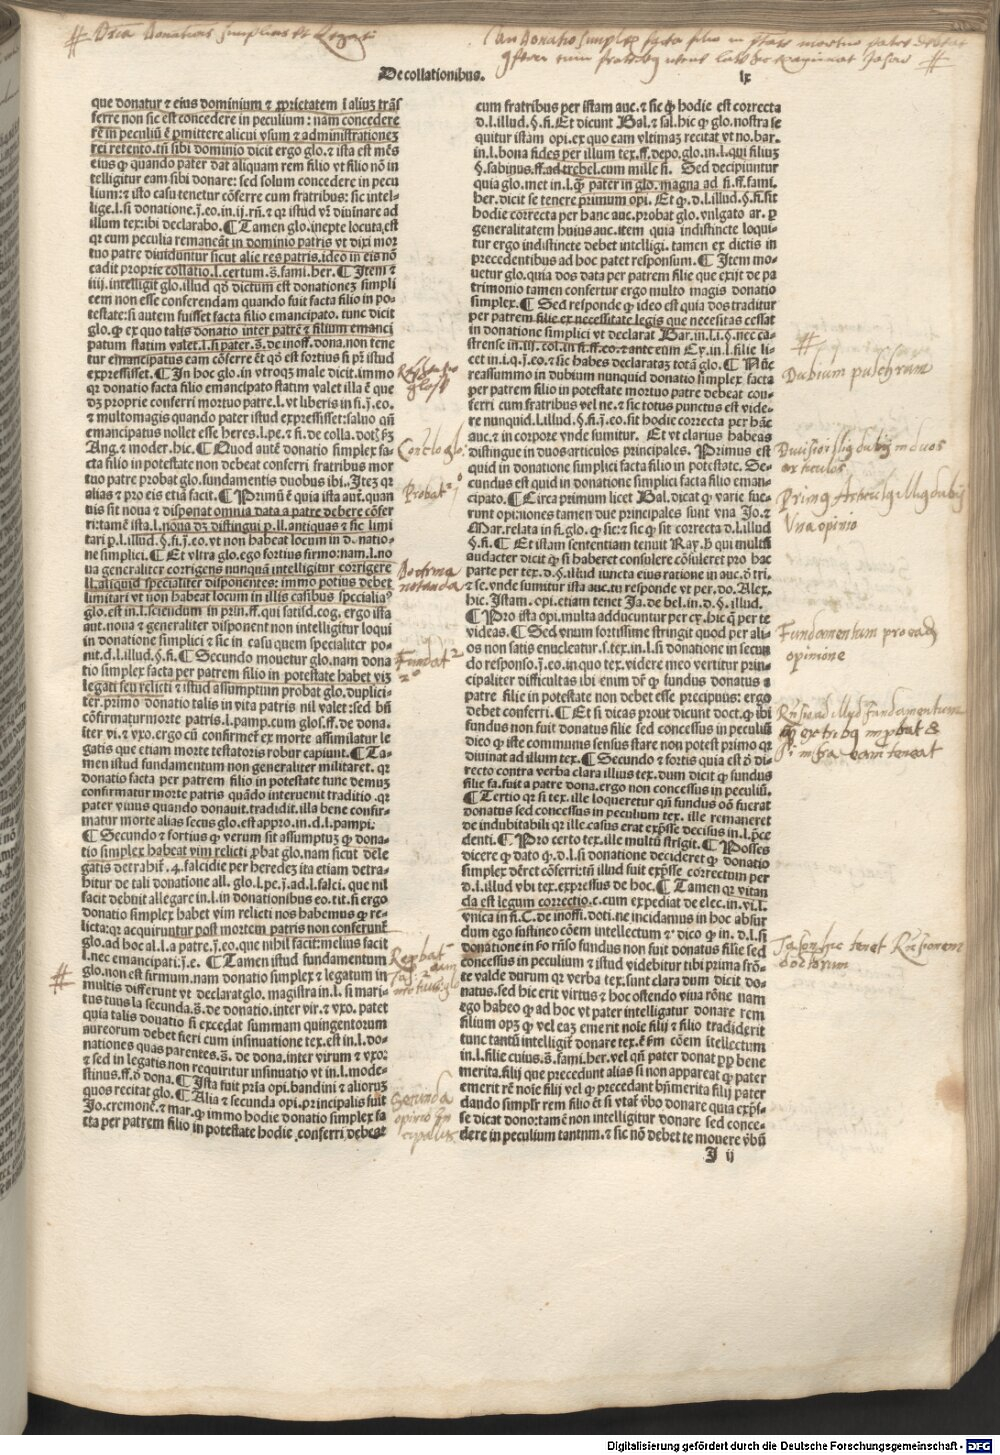 De collationibus.
lx
que donatur & eius dominium & proprietatem in alium trãs
ferre non sic est concedere in peculium : nam concedere
rẽ in peculiũ ẽ pmittere alicui vsum & administrationez
rei retento.tñ sibi dominio dicit ergo glo.& ista est mẽs
eius qɔ quando pater dat aliquam rem filio vt filio nõ in
telligitur eam sibi donare: sed solum concedere in pecu
lium: & isto casu tenetur cõferre cum fratribus: sic intel-
illum tex.ibi declarabo. ¶ Tamen glo.inepte locuta est
qr cum peculia remaneãt in dominio patris vt dixi mor
tuo patre diuiduntur sicut alie res patris.ideo in eis nõ
cadit proprie collatio.l.certum.s̃.fami.her. ¶ Itẽm &
iiij.intelligit glo.illud qõ dictum est donationem simpli
cem non esse conferendam quando fuit facta filio in po-
testate: si autem fuisset facta filio emancipato. tunc dicit
glo.qɔ ex quo talis donatio inter patrẽ & filium emanci
patum statim valet.l.si pater.s̃.de inoff.dona.non tene
tur emancipatus eam cõferre
expressisset. ¶ In hoc glo.in vtroqz male dicit.immo
qr donatio facta filio emancipato statim valet illa ẽ que
dz proprie conferri mortuo patre.l.vt liberis in fi.j̃.eo.
& multomagis quando pater istud expressisset: saluo qñ
emancipatus nollet esse heres.l.pe.& fi.de colla.
Ang.& moder.hic. ¶ Quod autẽ donatio simplex fa-
cta filio in potestate non debeat conferri fratribus mor
tuo patre probat glo.fundamentis duobus ibi.
alias & pro eis etiã facit. ¶ Primũ ẽ quia ista aut.quan
uis sit noua & disponat omnia data a patre debere cõfer
ri:tamẽ ista.l.noua dz distingui p.ll.antiquas & sic limi
tari p.l.illud.§.fi.j̃.eo.vt non habeat locum in donatio-
ne simplici. ¶ Et vltra glo.ego fortius firmo:nam.l.no
ua generaliter corrigens nunquã intelligitur corrigere
ll.aliquid specialiter disponentes: immo potius debet
limitari vt non habeat locum in illis casibus specialia
glo.est in.l.sciendum in prin.ff.qui satisd.cog.ergo ista
aut.noua & generaliter disponent non intelligitur loqui
in donatione simplici & sic in casu quem specialiter po-
nit.d.l.illud.§.fi. ¶ Secundo mouetur glo.nam dona
tio simplex facta per patrem filio in potestate habet viz
legati seu relicti & istud assumptum probat glo.duplici-
ter.primo donatio talis in vita patris nil valet:sed bñ
cõfirmatur morte patris.l.pamp.cum glos.ff.de dona.
inter vi.& vxo.ergo cũ confirmet̃ ex morte assimilatur le
gatis que etiam morte testatoris robur capiunt. ¶ Ta-
men istud fundamentum non generaliter militaret.qr
donatio facta per patrem filio in potestate tunc demuz
confirmatur morte patris quãdo interuenit traditio .qr
pater viuus quando donauit.tradidit.illa bene confir-
matur morte alias secus glo.est appro.in.d.l.pampi.
¶ Secundo & fortius qɔ verum sit assumptuz qɔ dona-
tio simplex habeat vim relicti pbat glo.nam sicut de le
gatis detrahit̃.4.falcidie per heredez ita etiam detra-
hitur de tali donatione all. glo.l.pe.j̃.ad.l.falci. que nil
facit debuit allegare in.l.in donationibus eo.tit.si ergo
donatio simplex habet vim relicti nos habemus qɔ re-
licta:qr acquiruntur post mortem patris non conferunt̃
glo.ad hoc al.l.a patre.j̃.eo.que nihil facit:melius facit
l.nec emancipati.j̃.e. ¶ Tamen istud fundamentum
glo.non est firmum.nam donatio simplex & legatum in
multis differunt vt declarat glo. magistra in.l. si mari-
tus tuus la secunda.s̃.de donatio.inter vir.& vxo. patet
quia talis donatio si excedat summam quingentorum
aureorum debet fieri cum insinuatione tex.est in.l.do-
nationes quas parentes.s̃. de dona.inter virum & vxo:
& sed in legatis non requiritur insinuatio vt in.l.mode-
stinus.ff.d̃ dona. ¶ Ista fuit pria opi.bandini & aliorum
quos recitat glo. ¶ Alia & secunda opi.principalis fuit
Jo.cremonẽ.& mar.qɔ immo hodie donatio simplex fa
cta per patrem filio in potestate hodie conferri debeat
cum fratribus per istam auc.& sic § hodie est correcta
d.l.illud.§.fi.Et dicunt Bal.& sal.hic qɔ glo.nostra se
quitur istam opi.ex quo eam vltimaz recitat vt no.bar.
in.l.bona fides per illum tex.ff.depo.glo.in.l.qui filium
§.sabinus.ff.ad trebel.cum mille fi. Sed decipiuntur
quia glo.met in.l.q̃ pater in glo.magna ad fi.ff.fami.
her. dicit se tenere primum opi. Et qɔ.d.l.illud.§.fi.sit
hodie correcta per hanc auc.probat glo.vulgato ar. p
generalitatem huius auc.item quia indistincte loqui-
tur ergo indistincte debet intelligi. tamen ex dictis in
precedentibus ad hoc patet responsum. ¶ Item mo-
uetur glo.quia dos data per patrem filie que exijt de pa
trimonio tamen confertur ergo multo magis donatio
simplex. ¶ Sed responde qɔ ideo est quia dos traditur
per patrem filie ex necessitate legis que necessitas cessat
in donatione simplici vt declarat Bar.in.l.i.§.nec ca-
strense in.iij.col.in fi.ff.eo.& ante eum Cy.in.l.filie li-
cet in.i.q.j̃.eo.& sic habes declarataz totã glo. ¶ Nũc
reassummo in dubium nunquid donatio simplex facta
per patrem filio in potestate mortuo patre debeat con-
ferri cum fratribus vel ne. & sic totus punctus est vide-
re nunquid.l.illud.§.fi.j̃.eo.sit hodie correcta per hãc
auc.& in corpore vnde sumitur. Et vt clarius habeas
distingue in duos articulos principales. Primus est
quid in donatione simplici facta filio in potestate. Se-
cundus est quid in donatione simplici facta filio emanci-
pato. ¶ Circa primum licet Bal.dicat qɔ varie fue-
runt opiniones tamen due principales sunt vna Jo.&
Mar.relata in fi.glo.qɔ sic:& sic qɔ sit correcta d.l.illud
§.fi. ¶ Et istam sententiam tenuit Ray. hic qui multũ
audacter dicit qɔ si haberet consulere cõsuleret pro hac
parte per tex.d.§.illud iuncta eius ratione in auc.d̃ tri.
& se.vnde sumitur ista auc.tu responde vt per.do.Alex.
hic. Istam.opi.etiam tenet Ja.de bel.in.d.§.illud.
¶ Pro ista opi.multa adducuntur per cy.hic q̃ per te
videas. ¶ Sed vnum fortissime stringit quod per ali-
os non satis enucleatur.s.tex.in.l.si donatione in secun
do responso.j̃.eo.in quo tex.videre meo vertitur prin-
cipaliter difficultas ibi enim dẽt qɔ fundus donatus a
patre filie in potestate non debet esse precipuus: ergo
debet conferri. ¶ Et si dicas prout dicunt doct.qɔ ibi
fundus non fuit donatus filie sed concessus in peculiũ
dico qɔ iste communis sensus stare non potest primo qr
diuinat ad illum tex. ¶ Secundo & fortis quia est d̃ di-
recto contra verba clara illius tex.dum dicit qɔ fundus
filie fa.fuit a patre dona.ergo non concessus in peculiũ.
¶ Tertio qr si tex.ille loqueretur qñ fundus nõ fuerat
donatus sed concessus in peculium tex. ille remaneret
de indubitabili qr ille casus erat exp̃sse decisus in.l.p̃ce
denti. ¶ Pro certo tex.ille multũ strigit. ¶ Posses
dicere qɔ dato qɔ.d.l.si donatione decideret qɔ donatio
simplex dẽret cõferri:tñ illud fuit exp̃sse correctum per
d.l.illud vbi tex.expressus de hoc. ¶ Tamen qr vitan
da est legum correctio.c.cum expediat de elec.in.vi.l.
vnica in fi.C.de inoffi.doti.ne incidamus in hoc absur
dum ego sustineo cõem intellectum & dico qɔ in.d.l.si
donatione in secundo rñso fundus non fuit donatus filie sed
concessus in peculium & istud videbitur tibi prima frõ-
te valde durum qr verba tex.sunt clara dum dicit do-
natus.sed hic erit virtus & hoc ostendo viua rõne nam
ego habeo qɔ ad hoc vt pater intelligatur donare rem
filium opz qɔ vel eaz emerit noĩe filij & filio tradiderit
tunc tantũ intelligit̃ donare tex.ẽ
in.l.filie cuius.s̃.fami.her.vel qñ pater donat ppp bene
merita.filij que precedunt alias si non appareat qɔ pater
emerit rẽ noĩe filij vel qɔ precedant bñmerita filij pater
dando simplr rem filio
se dicat dono:tamẽ non intelligitur donare sed conce-
dere in peculium tantum.& sic nõ debet te mouere
J ij
Dubium pulchrum
Primus Articulus
Vna opinio
Fundamentum pro ead
opinione
Doctrina
notanda
Probat
Fundat
Secunda
opinio
Jason hic tenet
doctorum
Digitalisierung gefördert durch die Deutsche Forschungsgemeinschaft - DFG